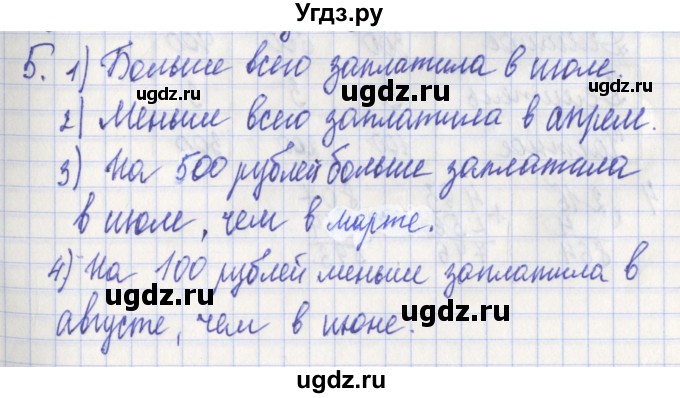 Угдз.ру
5. 1) Больше всего заплатила в июле.
ugdz.ru ugdz.ru
2) Меньше всего заплатила в апреле.
ugdz.ru
3) На 500 рублей больше заплатила
в июле, чем в марте.
ugdz.ru ugdz.ru
4) На 100 рублей меньше заплатила в
августе, чем в июне.
ugdz.ru ugdz.ru
ugdz.ru